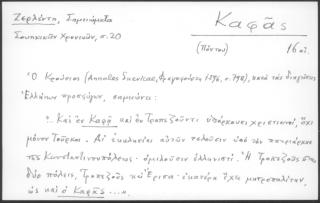 Ζερλέντη, Σημειώματα
Σουηκικῶν Χρονικῶν, σ. 20
Καφᾶς
(Πόντου)
16 αἰ.
Ὁ Κρούσιος (Annales Suevicae, Φραγκφούρτη 1596, σ. 798), κατὰ τὰς διηγήσεις
Ἑλλήνων προσφύγων, σημειώνει:
" Καὶ ἐν Καφᾷ καὶ ἐν Τραπεζοῦντι ὑπάρχουσι χριστιανοί, ὄχι
μόνον Τοῦρκοι. Αἱ ἐκκλησίαι αὐτῶν τελοῦσιν ὑπὸ τὸν πατριάρχην
τῆς Κωνσταντινουπόλεως· ὁμιλοῦσιν ἑλληνιστί. Ἡ Τραπεζοῦς
δύο πόλεις, Τραπεζοῦς καὶ ἑκατέρα ἔχει μητροπολίτην,
ὡς καὶ ὁ Καφᾶς ... ".